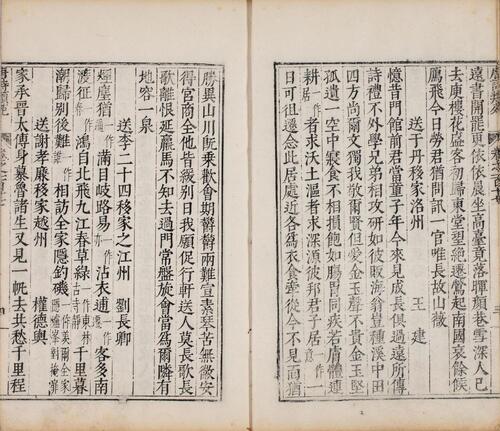 遠書開罷更依依晨坐高臺竟落暉顏巷雪深人已
去庾樓花盛客初歸東堂望絕遷鶯起南國哀餘候
鴈飛今日勞君猶問訊一官唯長故山薇
送于丹移家洛州 王建
憶昔門館前君當童子年今來見成長俱過遠所傳
詩禮不外學兄弟相攻研如彼販海翁豈種溪中田
四方尚爾文獨我敬爾賢但愛金玉聲不貴金玉堅
孤遺一室中寢食不相捐飽如腸胃同疾若膚體連
耕一作居者求沃土漚者求深淵彼邦君子居一作意
日可徂遷念此居處近各爲衣食牽從今不見面猶
勝異山川旣乘歡會期鬱鬱兩難宣素琴苦無徽安
得宮商全他皆緩別日我願促行軒送人莫長歌長
歌離恨延羸馬不知去過門常盤旋會當爲爾隣有
地容一泉
送李二十四移家之江州 劉長卿
煙塵猶一作滿目岐路易一作亦沾衣逋一作客多南
渡征一作鴻自北飛九江春草綠一作東林古寺靜千里暮
潮歸別後難一作相訪全家隱釣磯
送謝孝廉移家越州 權德輿
家承晉太傅身慕魯諸生又見一帆去共愁千里程